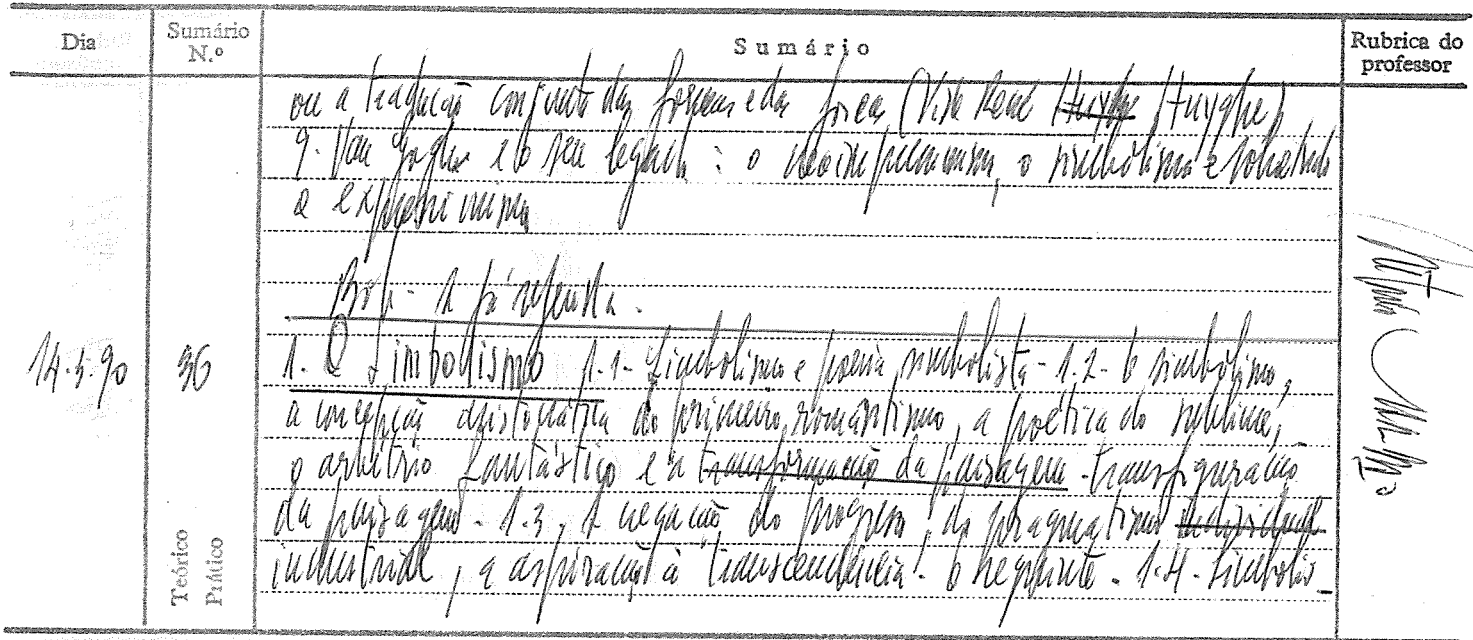 Dia
Sumário N.º
Sumário
Rubrica do professor
ou a tradução conjunta das formas e das forças (Vide René Huyghe Huyghe)
9. Van Gogh e o seu legado: o neoimpressionismo, o simbolismo e sobretudo
o expressionismo
14.5.90
36
1. O Simbolismo 1.1- Simbolismo e poesia simbolista - 1.2- O simbolismo,
a concepção aristocrática do primeiro romantismo, a poética do sublime,
o arbítrio fantástico e a transformação da paisagem - transfiguração
da paisagem - 1.3, A negação do progresso, do pragmatismo
industrial, a aspiração à transcendência. - 1.4- Simbolis-
Teórico
Prático